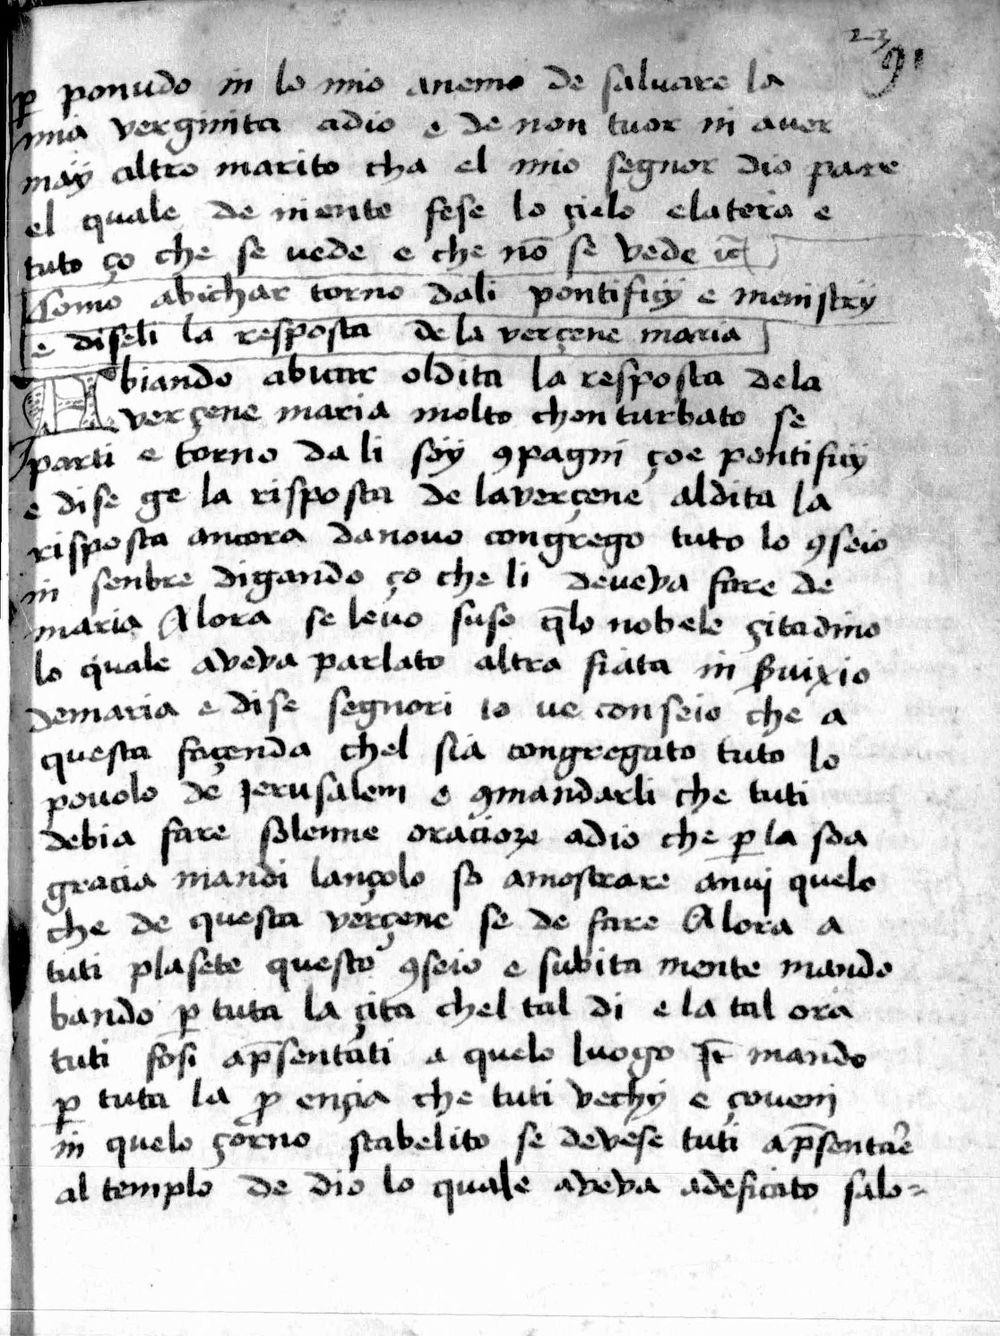 23
91
ꝑ ponudo in lo mio anemo de saluare la
mia verginita adio e de non tuor ni auer
may altro marito cha el mio segnor dio pare
el quale de niente fese lo çielo elatera e
tuto ço che se uede e che nō se vede
Como abichar torno dali pontificy e menistry
e diseli la resposta dela verçene maria
Abiando abicar oldita la resposta dela
verçene maria molto chonturbato se
parti e torno dali soy ꝯpagni çoe pontificy
e dise ge la risposta de lauerçene aldita la
risposta ancora danouo congrego tuto lo ꝯseio
in senbre digando ço che li deveva fare de
maria Alora se leuo suso q̄lo nobele çitadino
lo quale aveva parlato altra fiata in
demaria e dise segnori io ue conseio che a
questa façenda chel sia congregato tuto lo
pouolo de Jerusalem e ꝯmandarli che tuti
debia fare solenne oracione adio che ꝑ la soa
gracia mandi lançolo so amostrare anuj quelo
che de questa verçene se de fare Alora a
tuti plasete questo ꝯseio e subita mente mando
bando ꝑ tuta la çita chel tal di e la tal ora
tuti fosi ap̄sentati a quelo luogo It̄ mando
ꝑ tuta la ꝓ ençia che tuti vechy e çoueni
in quelo çorno stabelito se devese tuti ap̄sentare
al templo de dio lo quale aveva adeficato salo-